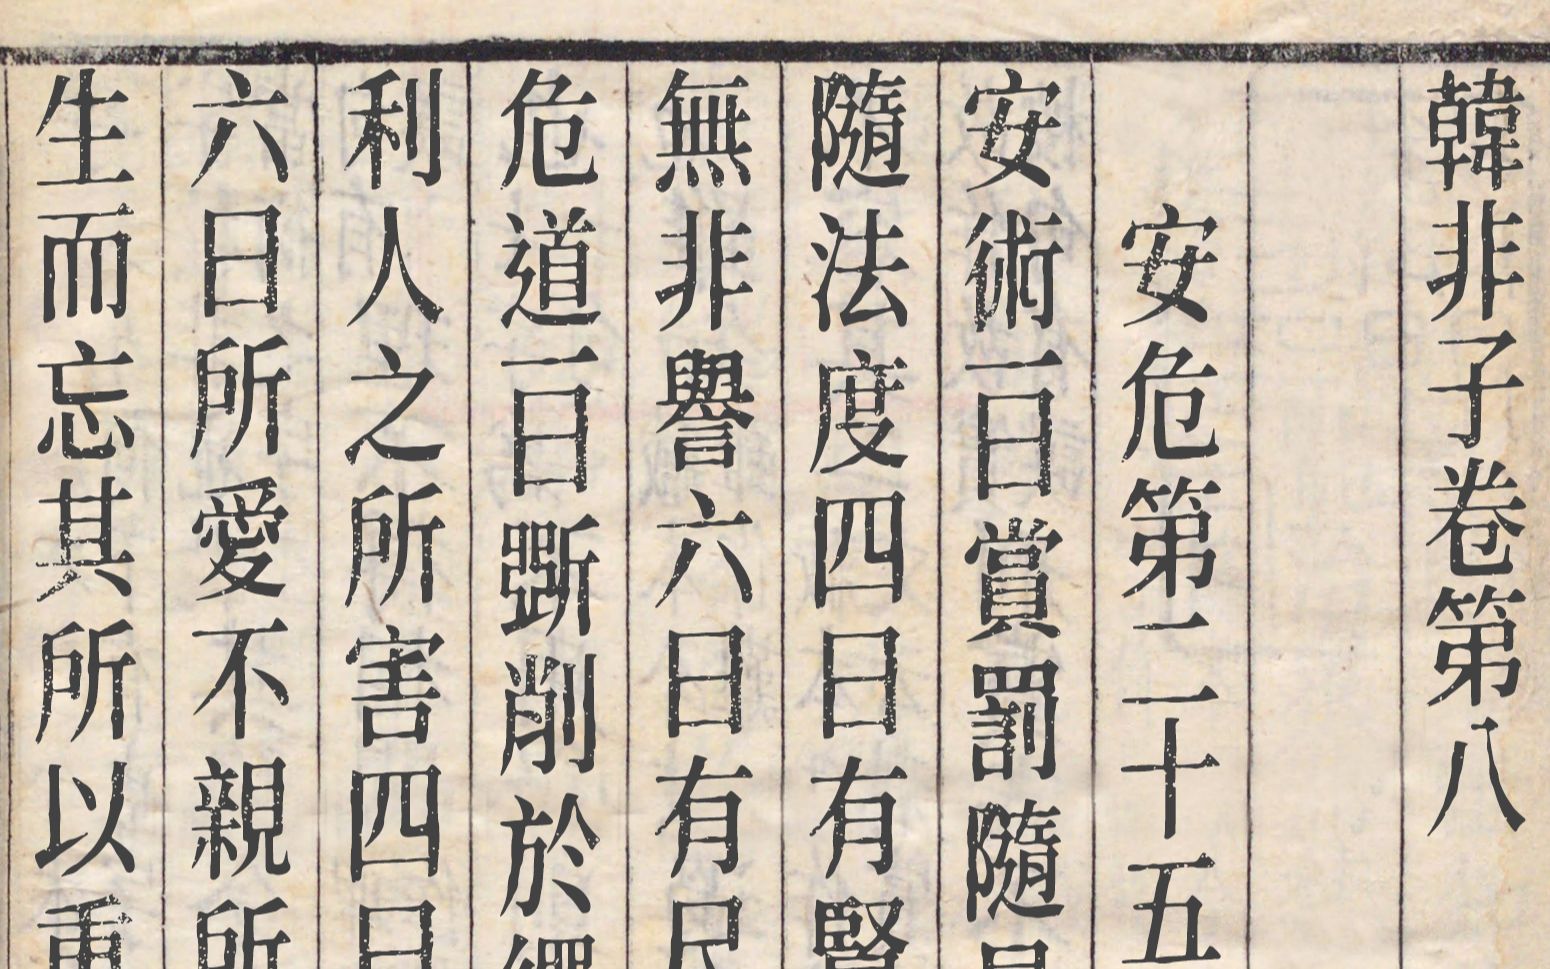 韓非子卷第八
安危第二十五
安術一曰賞罰隨
隨法度四曰有賢
無非譽六曰有尺
危道一曰斲削於
利人之所害四曰
六曰所愛不親所
生而忘其所以重